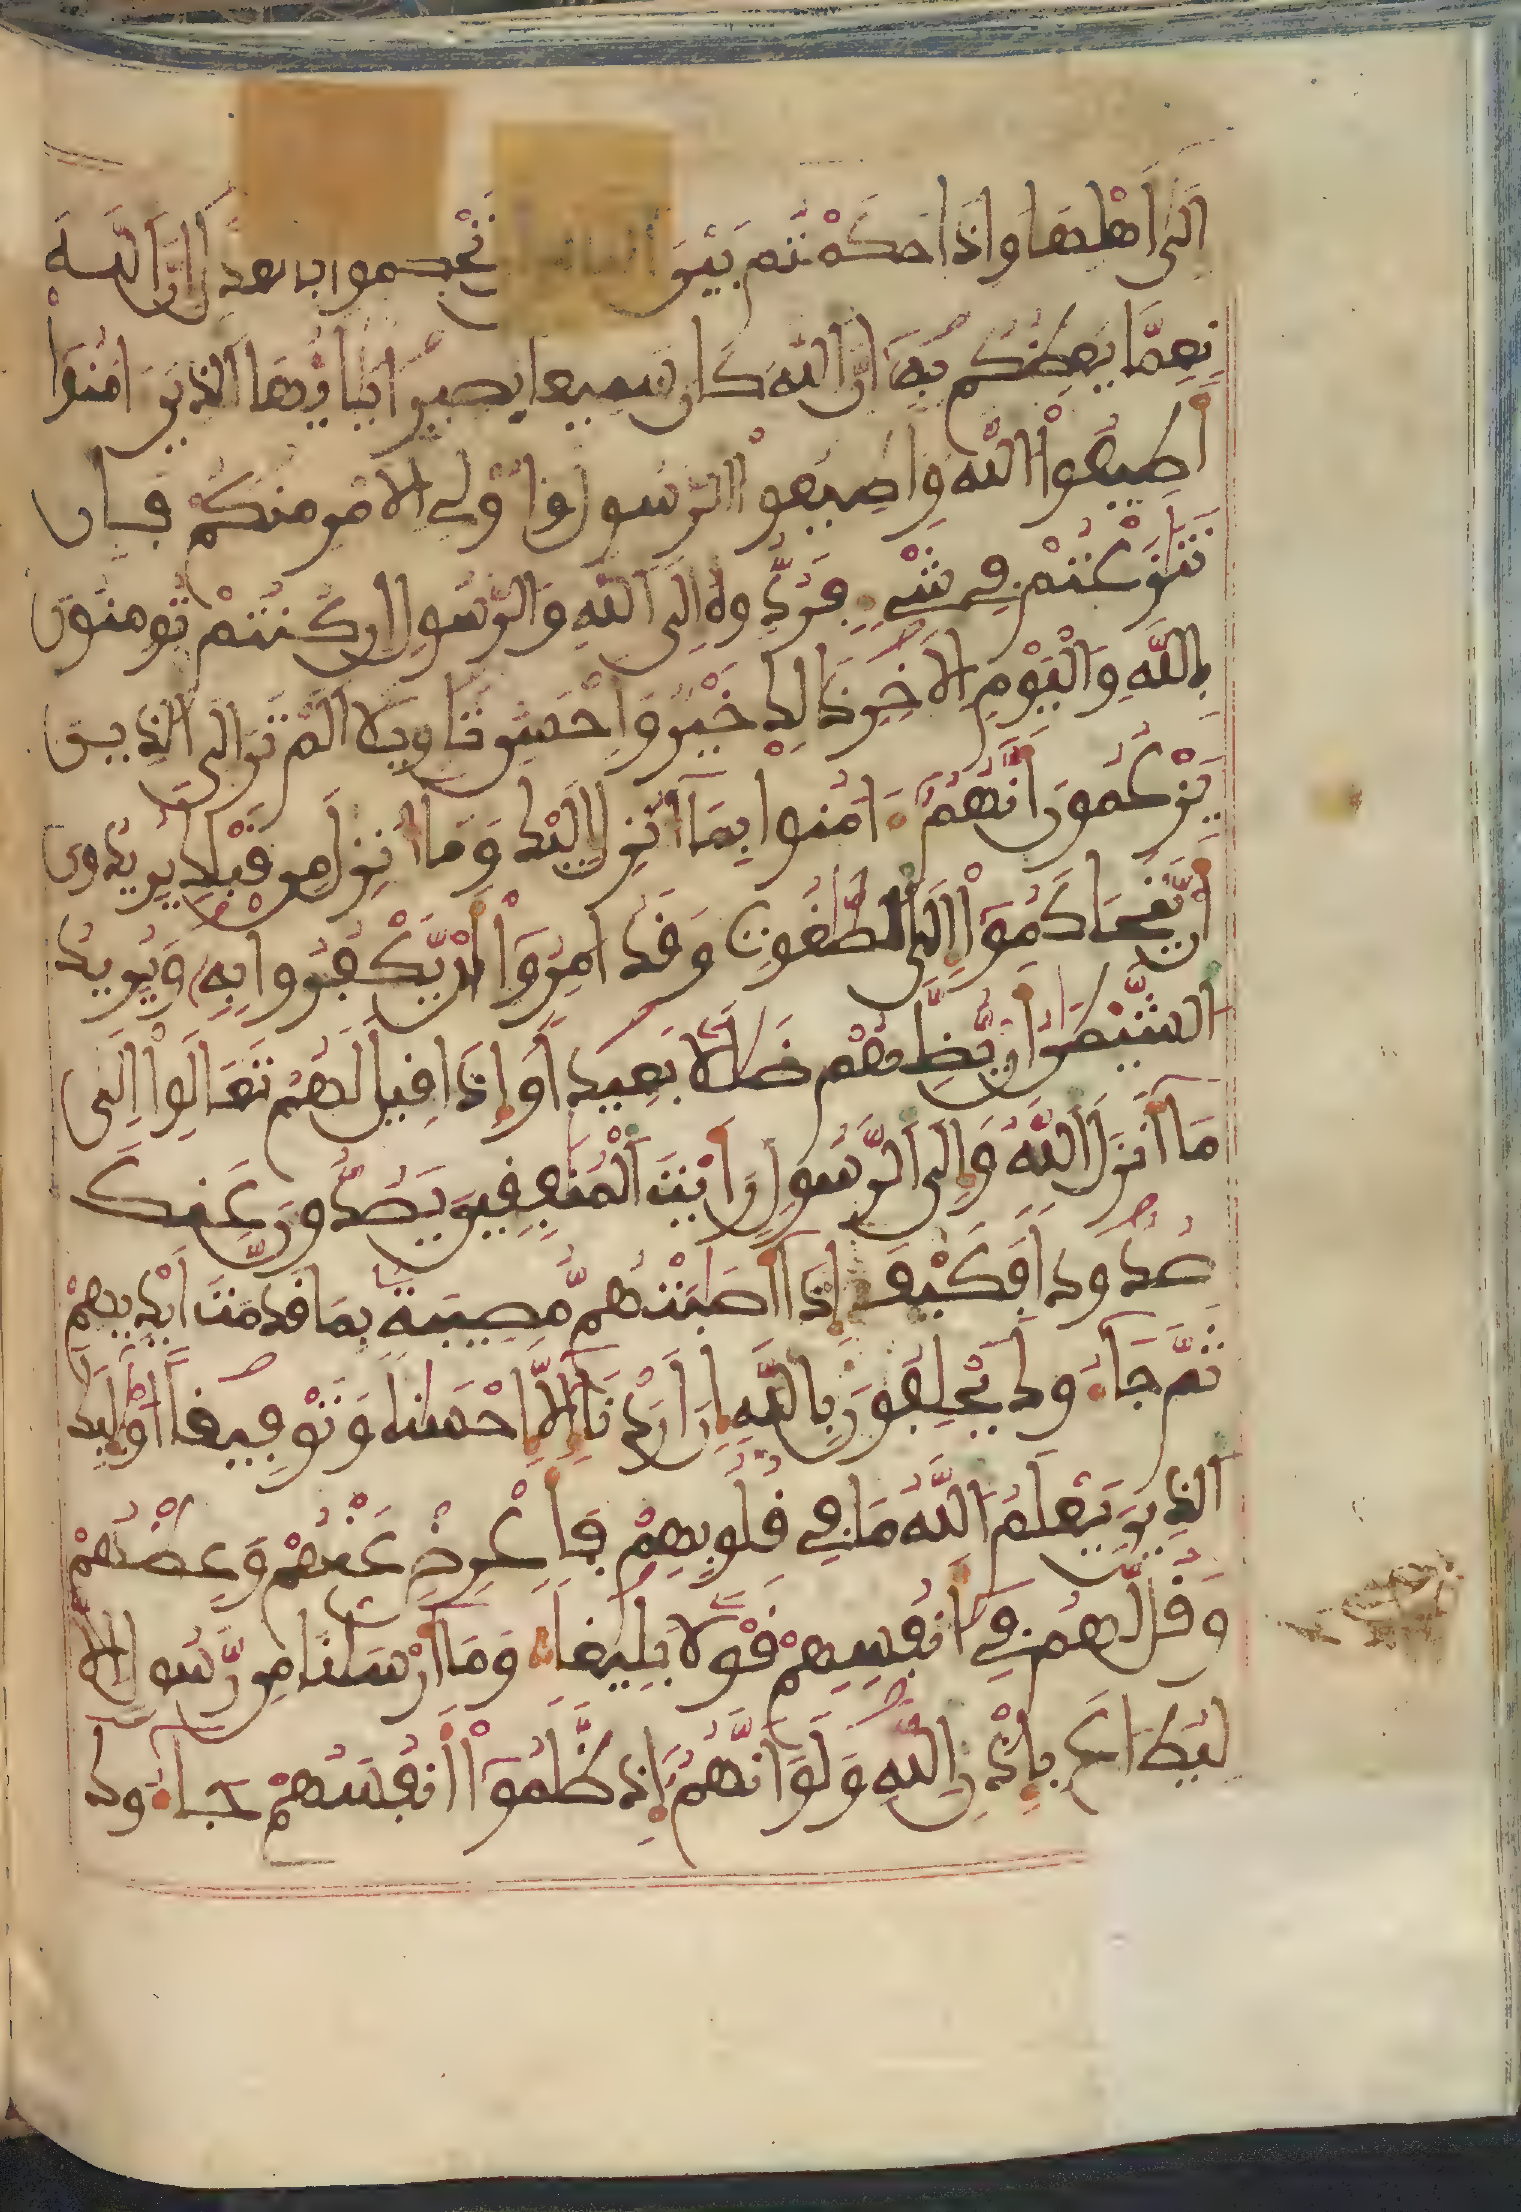 إلى أهلها وإذا حكمتم بين الناس أن تحكموا بالعدل إن الله
نعما يعظكم به إن الله كان سميعا بصيرا يايها الذين امنوا
أطيعوا الله وأطيعوا الرسول وأولي الامر منكم فإن
تنزعتم في شيء فردوه إلى الله والرسول إن كنتم تومنون
بالله واليوم الاخر ذلك خير وأحسن تاويلا ألم تر إلى الذين
يزعمون أنهم ءامنوا بما أنزل إليك وما أنزل من قبلك يريدون
أن يتحاكموا إلى الطغوت وقد أمروا أن يكفروا به ويريد
الشيطن أن يضلهم ضللا بعيدا وإذا قيل لهم تعالوا إلى
ما أنزل الله وإلى الرسول رأيت المنفقين يصدون عنك
صدودا فكيف إذا أصبتهم مصيبة بما قدمت أيديهم
ثم جاءوك يحلفون بالله إن أردنا إلا إحسنا وتوفيقا أولئك
الذين يعلم الله ما في قلوبهم فأعرض عنهم وعظهم
وقل لهم في أنفسهم قولا بليغا وما أرسلنا من رسول إلا
ليطاع بإذن الله ولو أنهم إذ ظلموا أنفسهم جاءوك